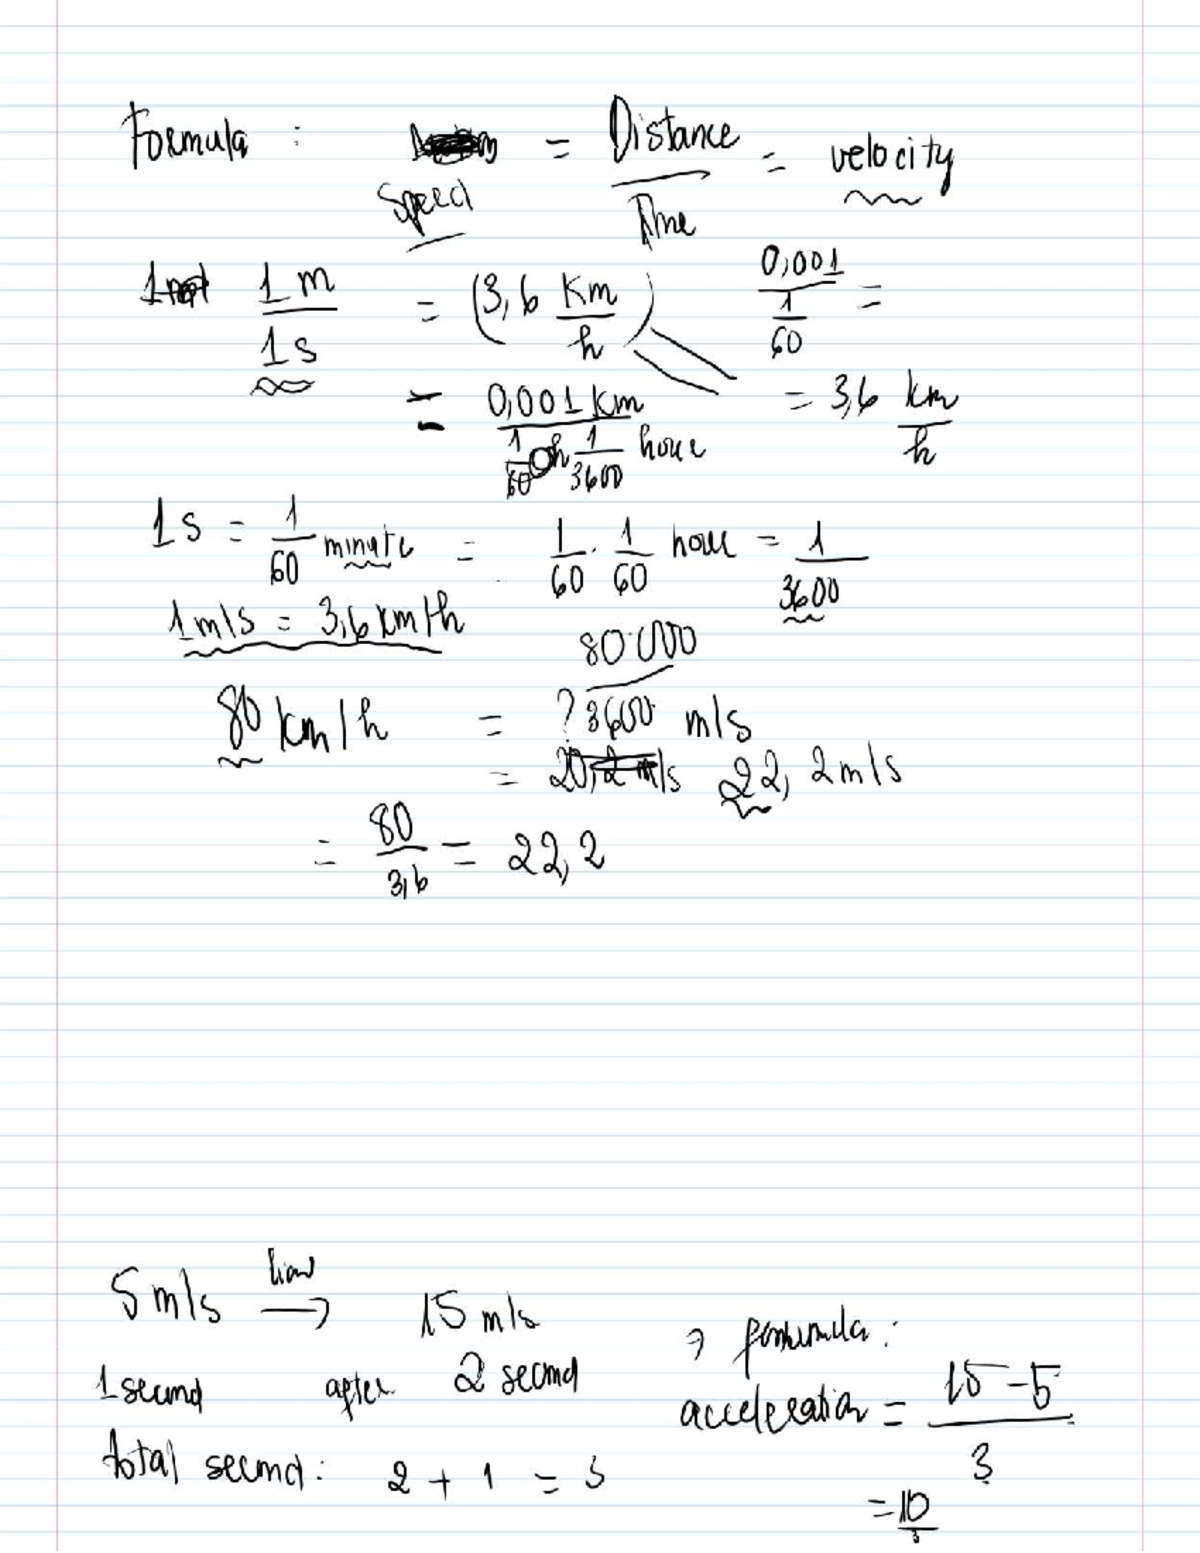 Formula : Speed = Distance / Time = velocity
1 m / 1 s = (3,6 Km / h) 0,001 / 1/60 =
= 0,001 km / 1/3600 hour = 3,6 km / h
1 s = 1/60 minute = 1/60 . 1/60 hour = 1/3600
1 m/s = 3,6 km/h
80 km/h = ? 80.000 / 3600 m/s
= 22, 2 m/s
= 80 / 3,6 = 22, 2
5 m/s → 15 m/s
1 second after 2 second
total second : 2 + 1 = 3
→ formula :
acceleration = 15 - 5 / 3
= 10 / 3